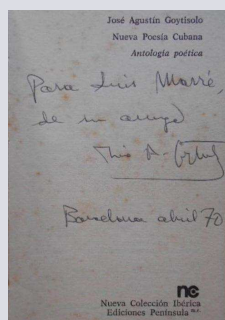 José Agustín Goytisolo
Nueva Poesía Cubana
Antología poética
Para Luis Marré,
de su amigo
Barcelona abril 70
nc
Nueva Colección Ibérica
Ediciones Península